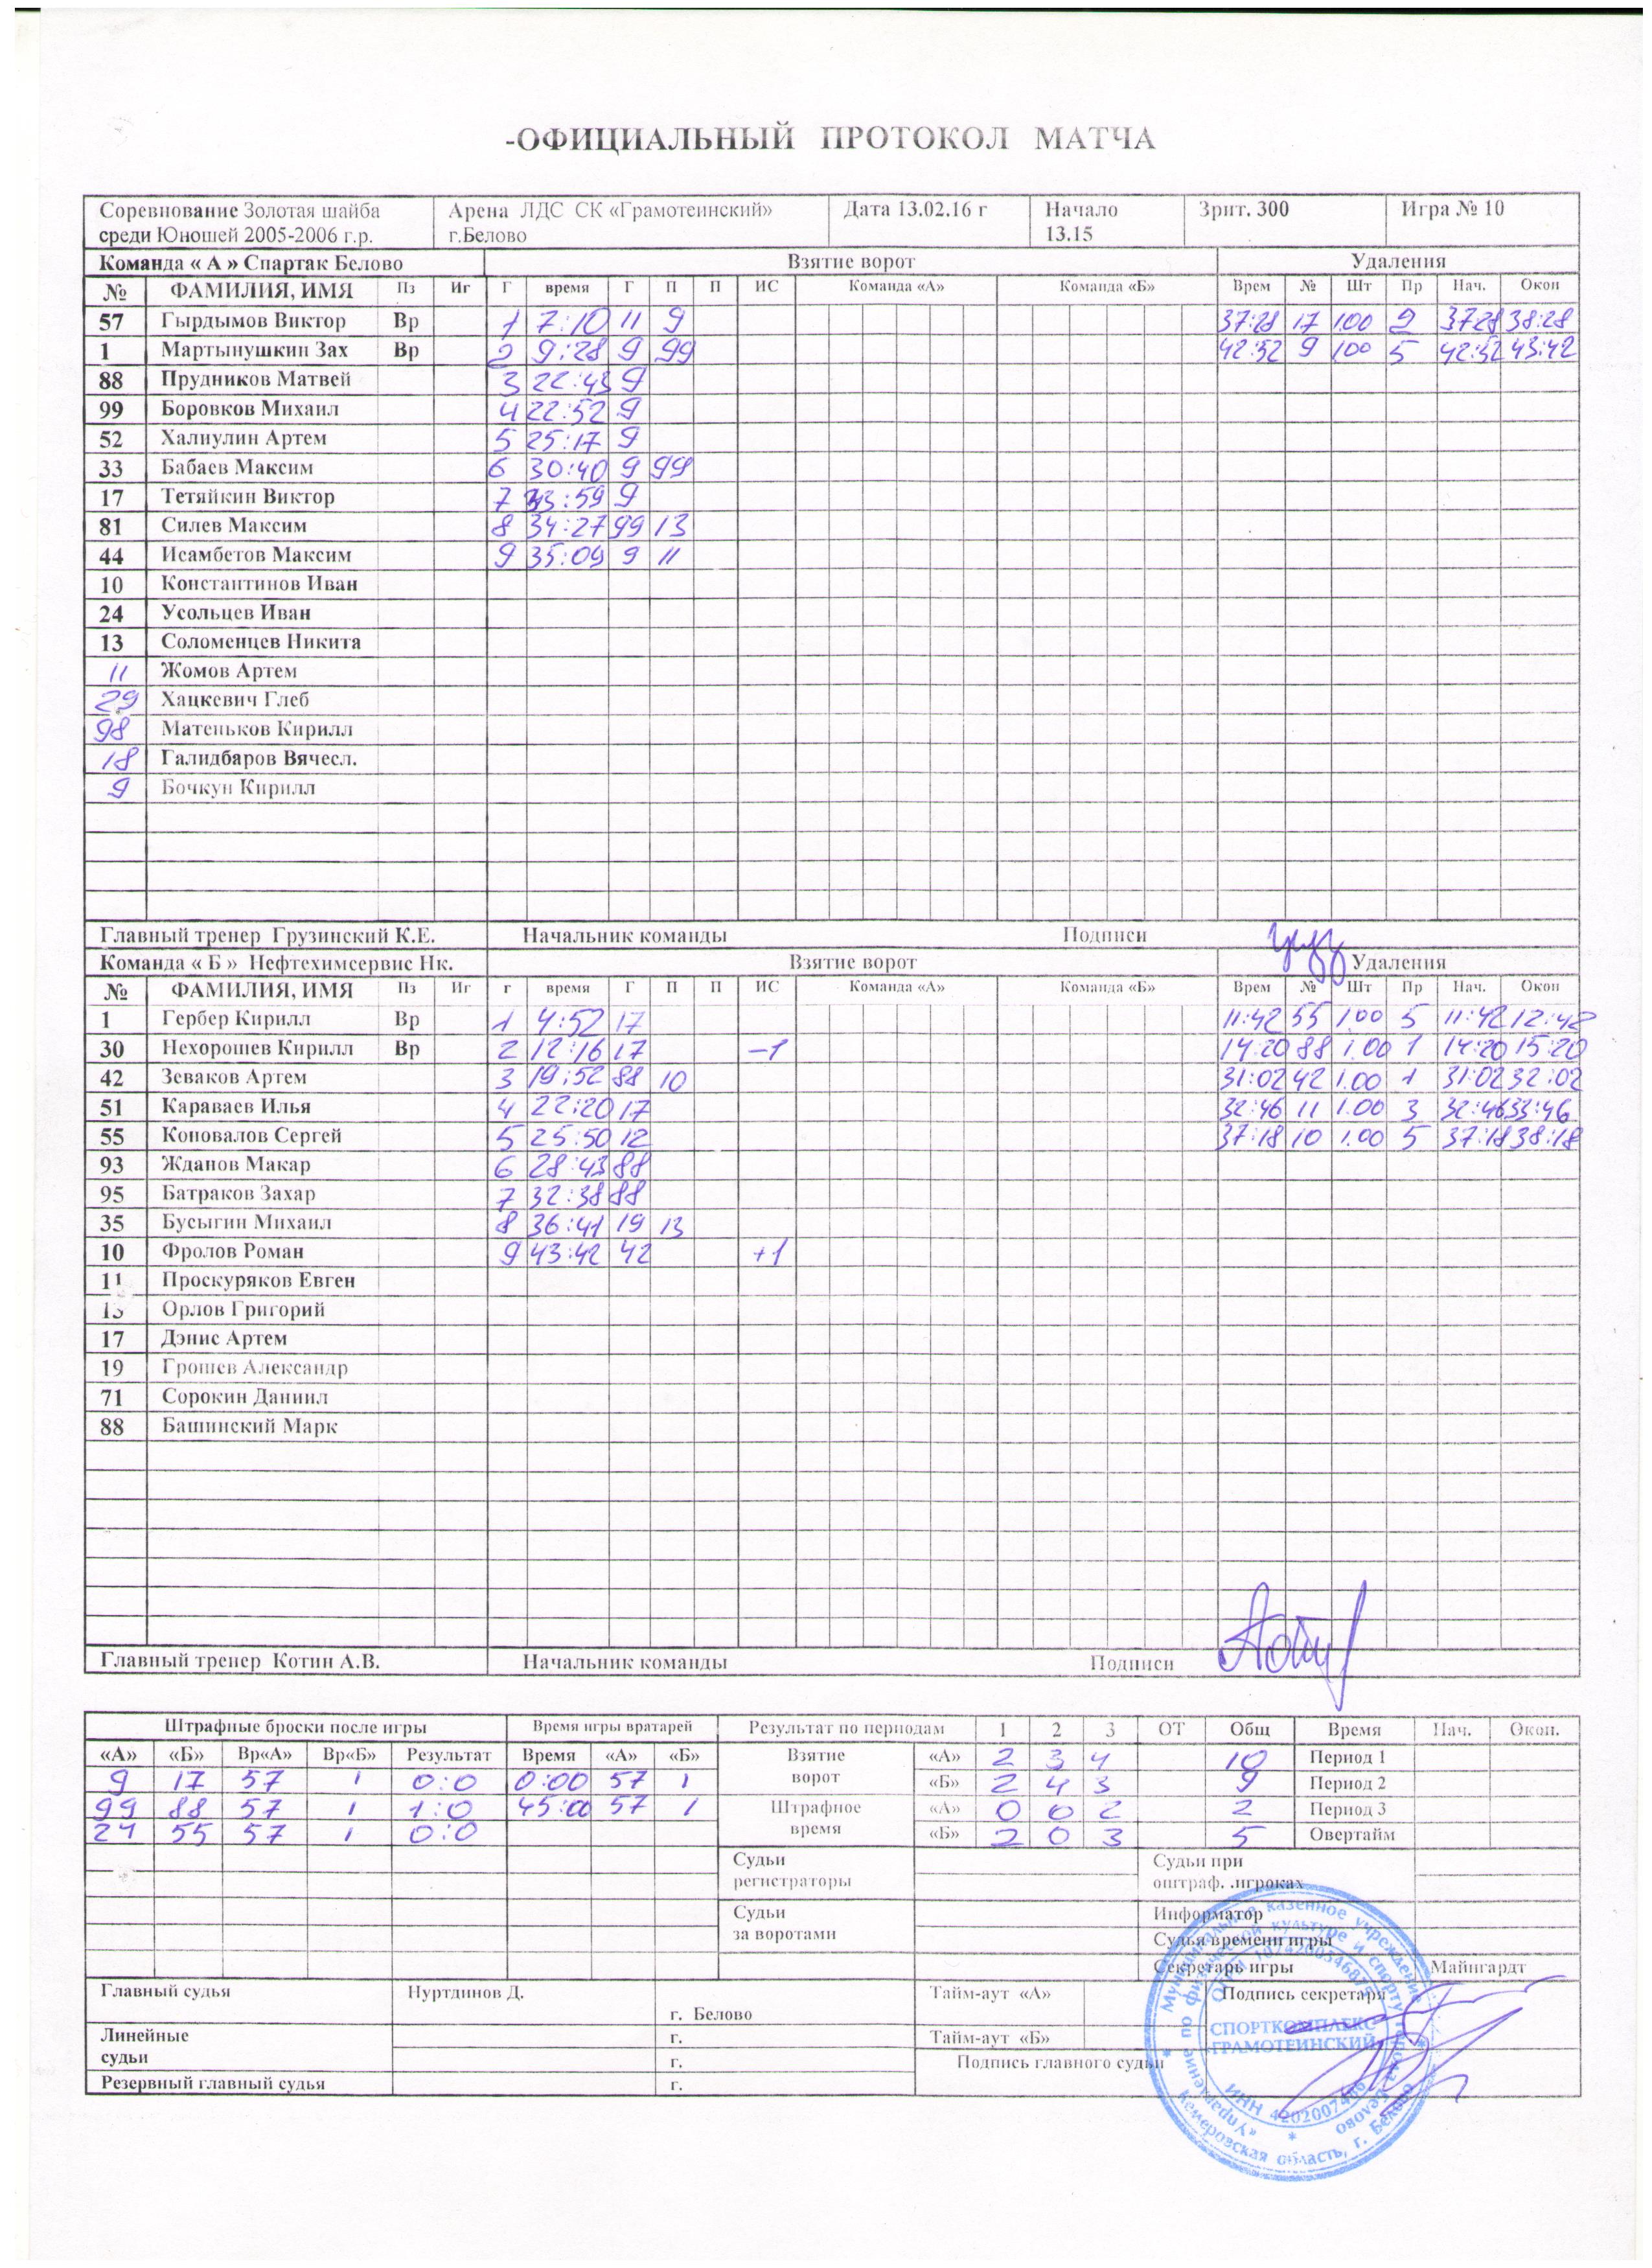 -ОФИЦИАЛЬНЫЙ ПРОТОКОЛ МАТЧА
Соревнование Золотая шайба среди Юношей 2005-2006 г.р. Арена ЛДС СК «Грамотеинский» г.Белово Дата 13.02.16 г Начало 13.15 Зрит. 300 Игра № 10
Команда « А » Спартак Белово Взятие ворот Удаления
№ ФАМИЛИЯ, ИМЯ Пз Иг Г время Г П П ИС Команда «А» Команда «Б» Врем № Шт Пр Нач. Окон
57 Гырдымов Виктор Вр 1 7:10 11 9 37:28 17 1.00 2 37:28 38:28
1 Мартынушкин Зах Вр 2 9:28 9 99 42:52 9 1.00 5 42:52 43:42
88 Прудников Матвей 3 22:43 9
99 Боровков Михаил 4 22:52 9
52 Халиулин Артем 5 25:17 9
33 Бабаев Максим 6 30:40 9 99
17 Тетяйкин Виктор 7 33:59 9
81 Силев Максим 8 34:27 99 13
44 Исамбетов Максим 9 35:09 9 11
10 Константинов Иван
24 Усольцев Иван
13 Соломенцев Никита
11 Жомов Артем
29 Хацкевич Глеб
98 Матеньков Кирилл
18 Галидбаров Вячесл.
9 Бочкун Кирилл
Главный тренер Грузинский К.Е. Начальник команды Подписи
Команда « Б » Нефтехимсервис Нк. Взятие ворот Удаления
№ ФАМИЛИЯ, ИМЯ Пз Иг г время Г П П ИС Команда «А» Команда «Б» Врем № Шт Пр Нач. Окон
1 Гербер Кирилл Вр 1 4:52 17 11:42 55 1.00 5 11:42 12:42
30 Нехорошев Кирилл Вр 2 12:16 17 -1 14:20 88 1.00 1 14:20 15:20
42 Зеваков Артем 3 19:52 88 10 31:02 42 1.00 1 31:02 32:02
51 Караваев Илья 4 22:20 17 32:46 11 1.00 3 32:46 33:46
55 Коновалов Сергей 5 25:50 12 37:18 10 1.00 5 37:18 38:18
93 Жданов Макар 6 28:43 88
95 Батраков Захар 7 32:38 88
35 Бусыгин Михаил 8 36:41 19 13
10 Фролов Роман 9 43:42 42 +1
11 Проскуряков Евген
13 Орлов Григорий
17 Дэнис Артем
19 Грошев Александр
71 Сорокин Даниил
88 Башинский Марк
Главный тренер Котин А.В. Начальник команды Подписи
Штрафные броски после игры Время игры вратарей Результат по периодам 1 2 3 ОТ Общ Время Нач. Окон.
«А» «Б» Вр«А» Вр«Б» Результат Время «А» «Б» Взятие ворот «А» 2 3 4 10 Период 1
9 17 57 1 0:0 0:00 57 1 «Б» 2 4 3 9 Период 2
99 88 57 1 1:0 45:00 57 1 Штрафное время «А» 0 0 2 2 Период 3
24 55 57 1 0:0 «Б» 2 0 3 5 Овертайм
Судьи регистраторы Судьи при оштраф. .игроках
Судьи за воротами Информатор
Судья времени игры
Секретарь игры Майнгардт
Главный судья Нуртдинов Д. г. Белово Тайм-аут «А» Подпись секретаря
Линейные судьи г. Тайм-аут «Б»
г. Подпись главного судьи
Резервный главный судья г.
Муниципальное казенное учреждение
«Управление по физической культуре и спорту города Белово
СПОРТКОМПЛЕКС
ГРАМОТЕИНСКИЙ
Кемеровская область, г. Белово